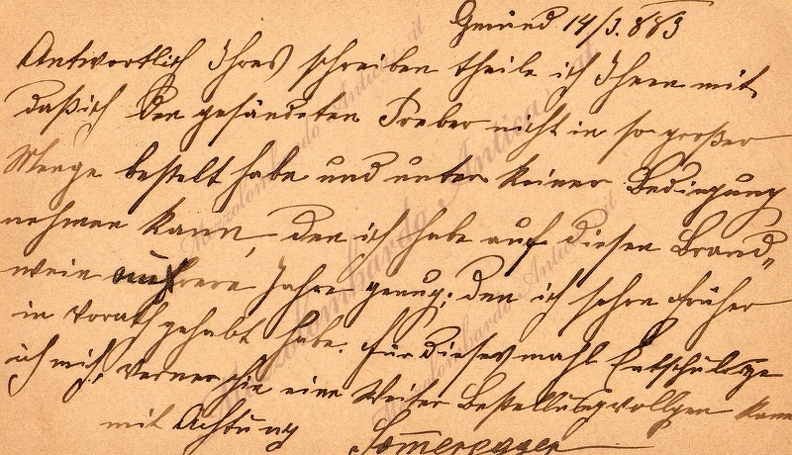 Gmünd 14/3. 883
Antwortlich Ihres schreiben theile ich Ihnen mit,
daß ich den gesändeten Treber nicht in so großer
Menge bestelt habe und unter keiner Bedingung
nehmen kann, den ich habe auf diesen Brand„
wein mehrere Jahre genug; den ich schon früher
in Vorath gehabt habe. für dieses mahl Entschuldige
ich mich, ferner Sie eine Weiter Bestellung kann
mit Achtung Sommeregger